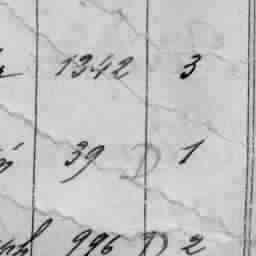 1342 3
39 D 1
996 D 2